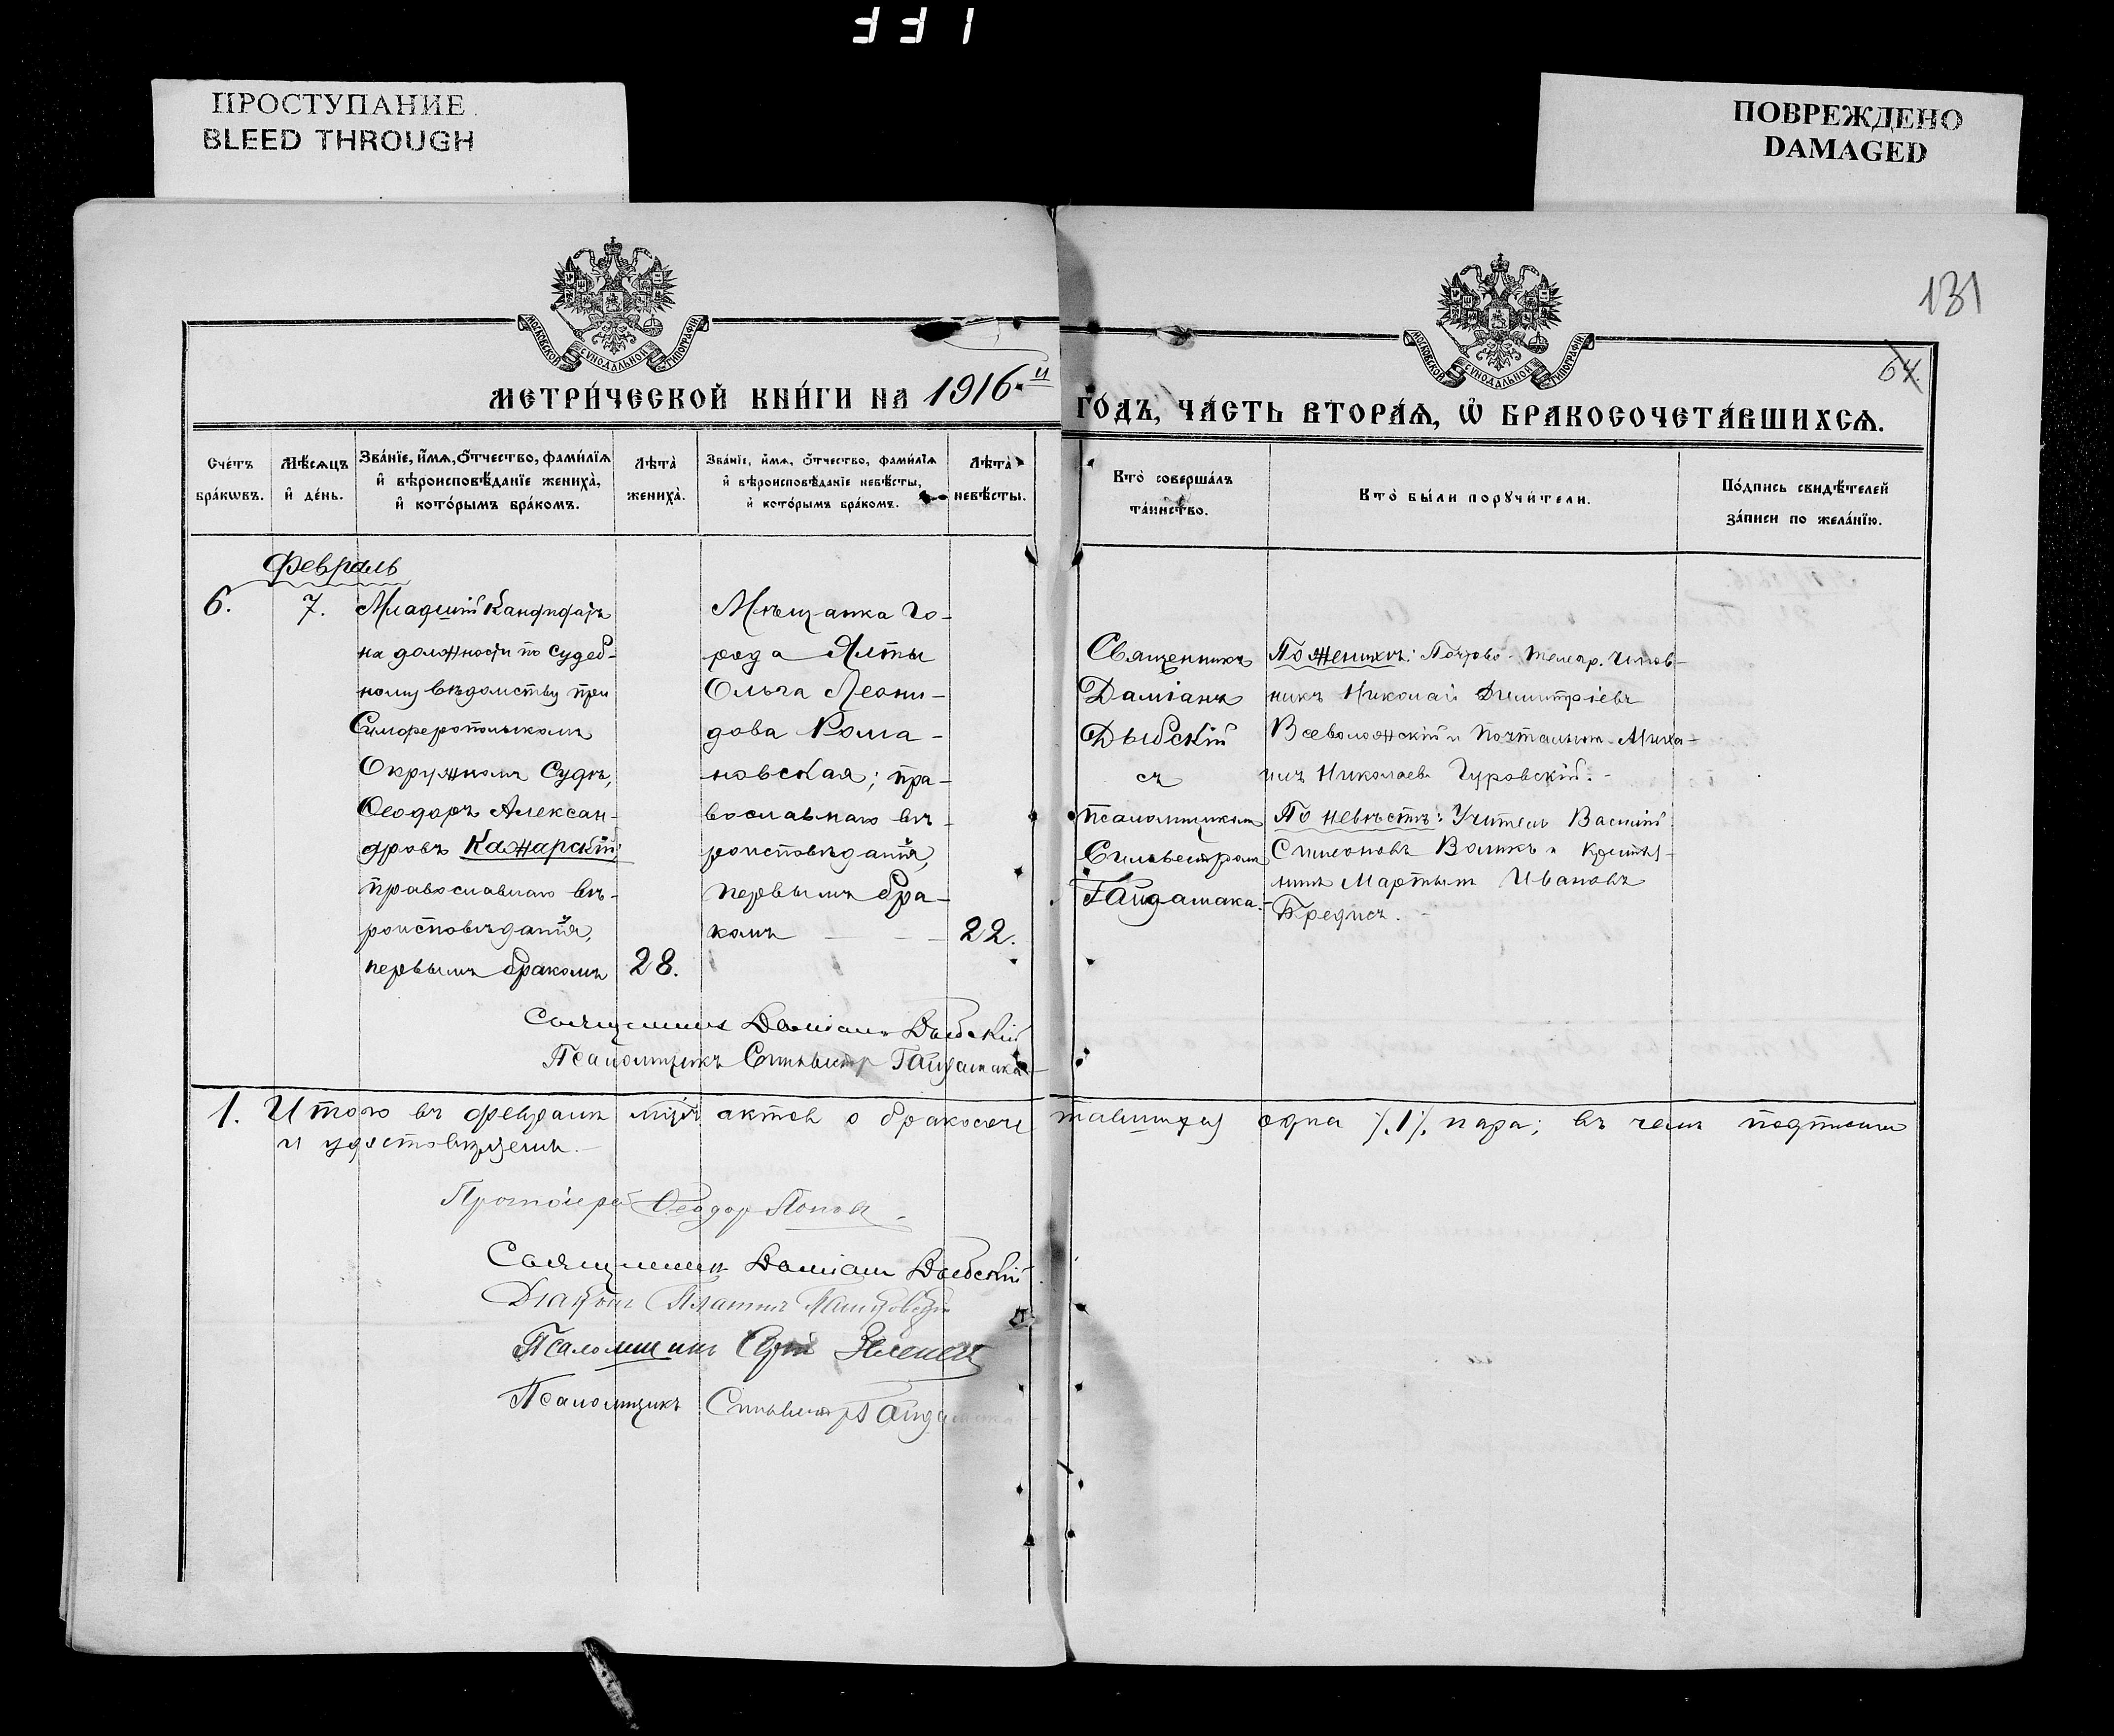 331
ПРОСТУПАНИЕ
BLEED THROUGH
ПОВРЕЖДЕНО
DAMAGED
131
64.
МОСКОВСКОЙ СѴНОДАЛЬНОЙ ТИПОГРАФІИ
МОСКОВСКОЙ СѴНОДАЛЬНОЙ ТИПОГРАФІИ
МЕТРИ́ЧЕСКОЙ КНИ́ГИ НА 1916й ГО́ДЪ, ЧА́СТЬ ВТОРА́Ѧ, Ѽ БРАКОСОЧЕТА́ВШИХСѦ.
Сче́тъ
бра́кѡвъ.
Мѣ́сѧцъ
и҆ де́нь.
Зва́нїе, и҆́мѧ, ѻ҆́тчество, фами́лїѧ
и҆ вѣроисповѣ́данїе жениха̀,
и҆ кото́рымъ бра́комъ.
Лѣ́та̀
жениха̀.
Зва́нїе, и҆́мѧ, ѻ҆́тчество, фами́лїѧ
и҆ вѣроисповѣ́данїе невѣ́сты,
и҆ кото́рымъ бра́комъ.
Лѣ́та̀
невѣ́сты.
Кто̀ соверша́лъ
та́инство.
Кто̀ бы́ли порꙋчи́тели.
По́дпись свидѣ́телей
за́писи по жела́нїю.
Февраль
6.
7.
Младшій Кандидатъ
на должности по судеб-
ному вѣдомству при
Симферопольскомъ
Окружномъ Судѣ,
Ѳеодоръ Алексан-
дровъ Кажарскій;
православнаго вѣ-
роисповѣданія,
первымъ бракомъ
28.
Мѣщанка го-
рода Ялты
Ольга Леони-
дова Рома-
новская; пра-
вославнаго вѣ-
роисповѣданія,
первымъ бра-
комъ
22.
Священникъ
Даміанъ
Дыбскій
съ
псаломщикомъ
Сильвестромъ
Гайдамака.
По женихѣ: Почтово-телегр. чинов-
никъ Николай Димитріевъ
Всеволожскій и почтальонъ Миха-
илъ Николаевъ Гуровскій.
По невѣстѣ: Учитель Василій
Симеоновъ Воликъ и крестья-
нинъ Мартынъ Ивановъ
Бредисъ.
Священникъ Даміанъ Дыбскій
Псаломщикъ Сильвестр Гайдамака
1. Итого въ февралѣ мцѣ актовъ о бракосоче тавшихся одна ⁒1⁒ пара; въ чемъ подписью
и удостовѣряемъ.
Протоіерей Ѳеодор Попов
Священник Даміанъ Дыбскій
Діаконъ
Псаломщикъ
Псаломщикъ Сильвестръ Гайдамака